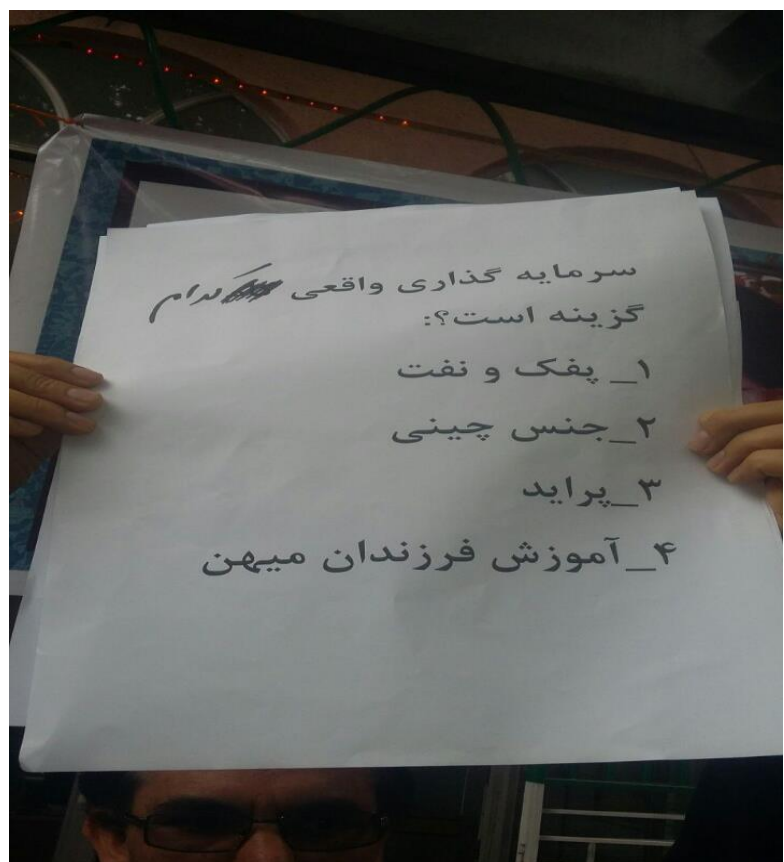 سرمایه گذاری واقعی کدام
گزینه است؟:
۱_ پفک و نفت
۲_جنس چینی
۳_پراید
۴_آموزش فرزندان میهن